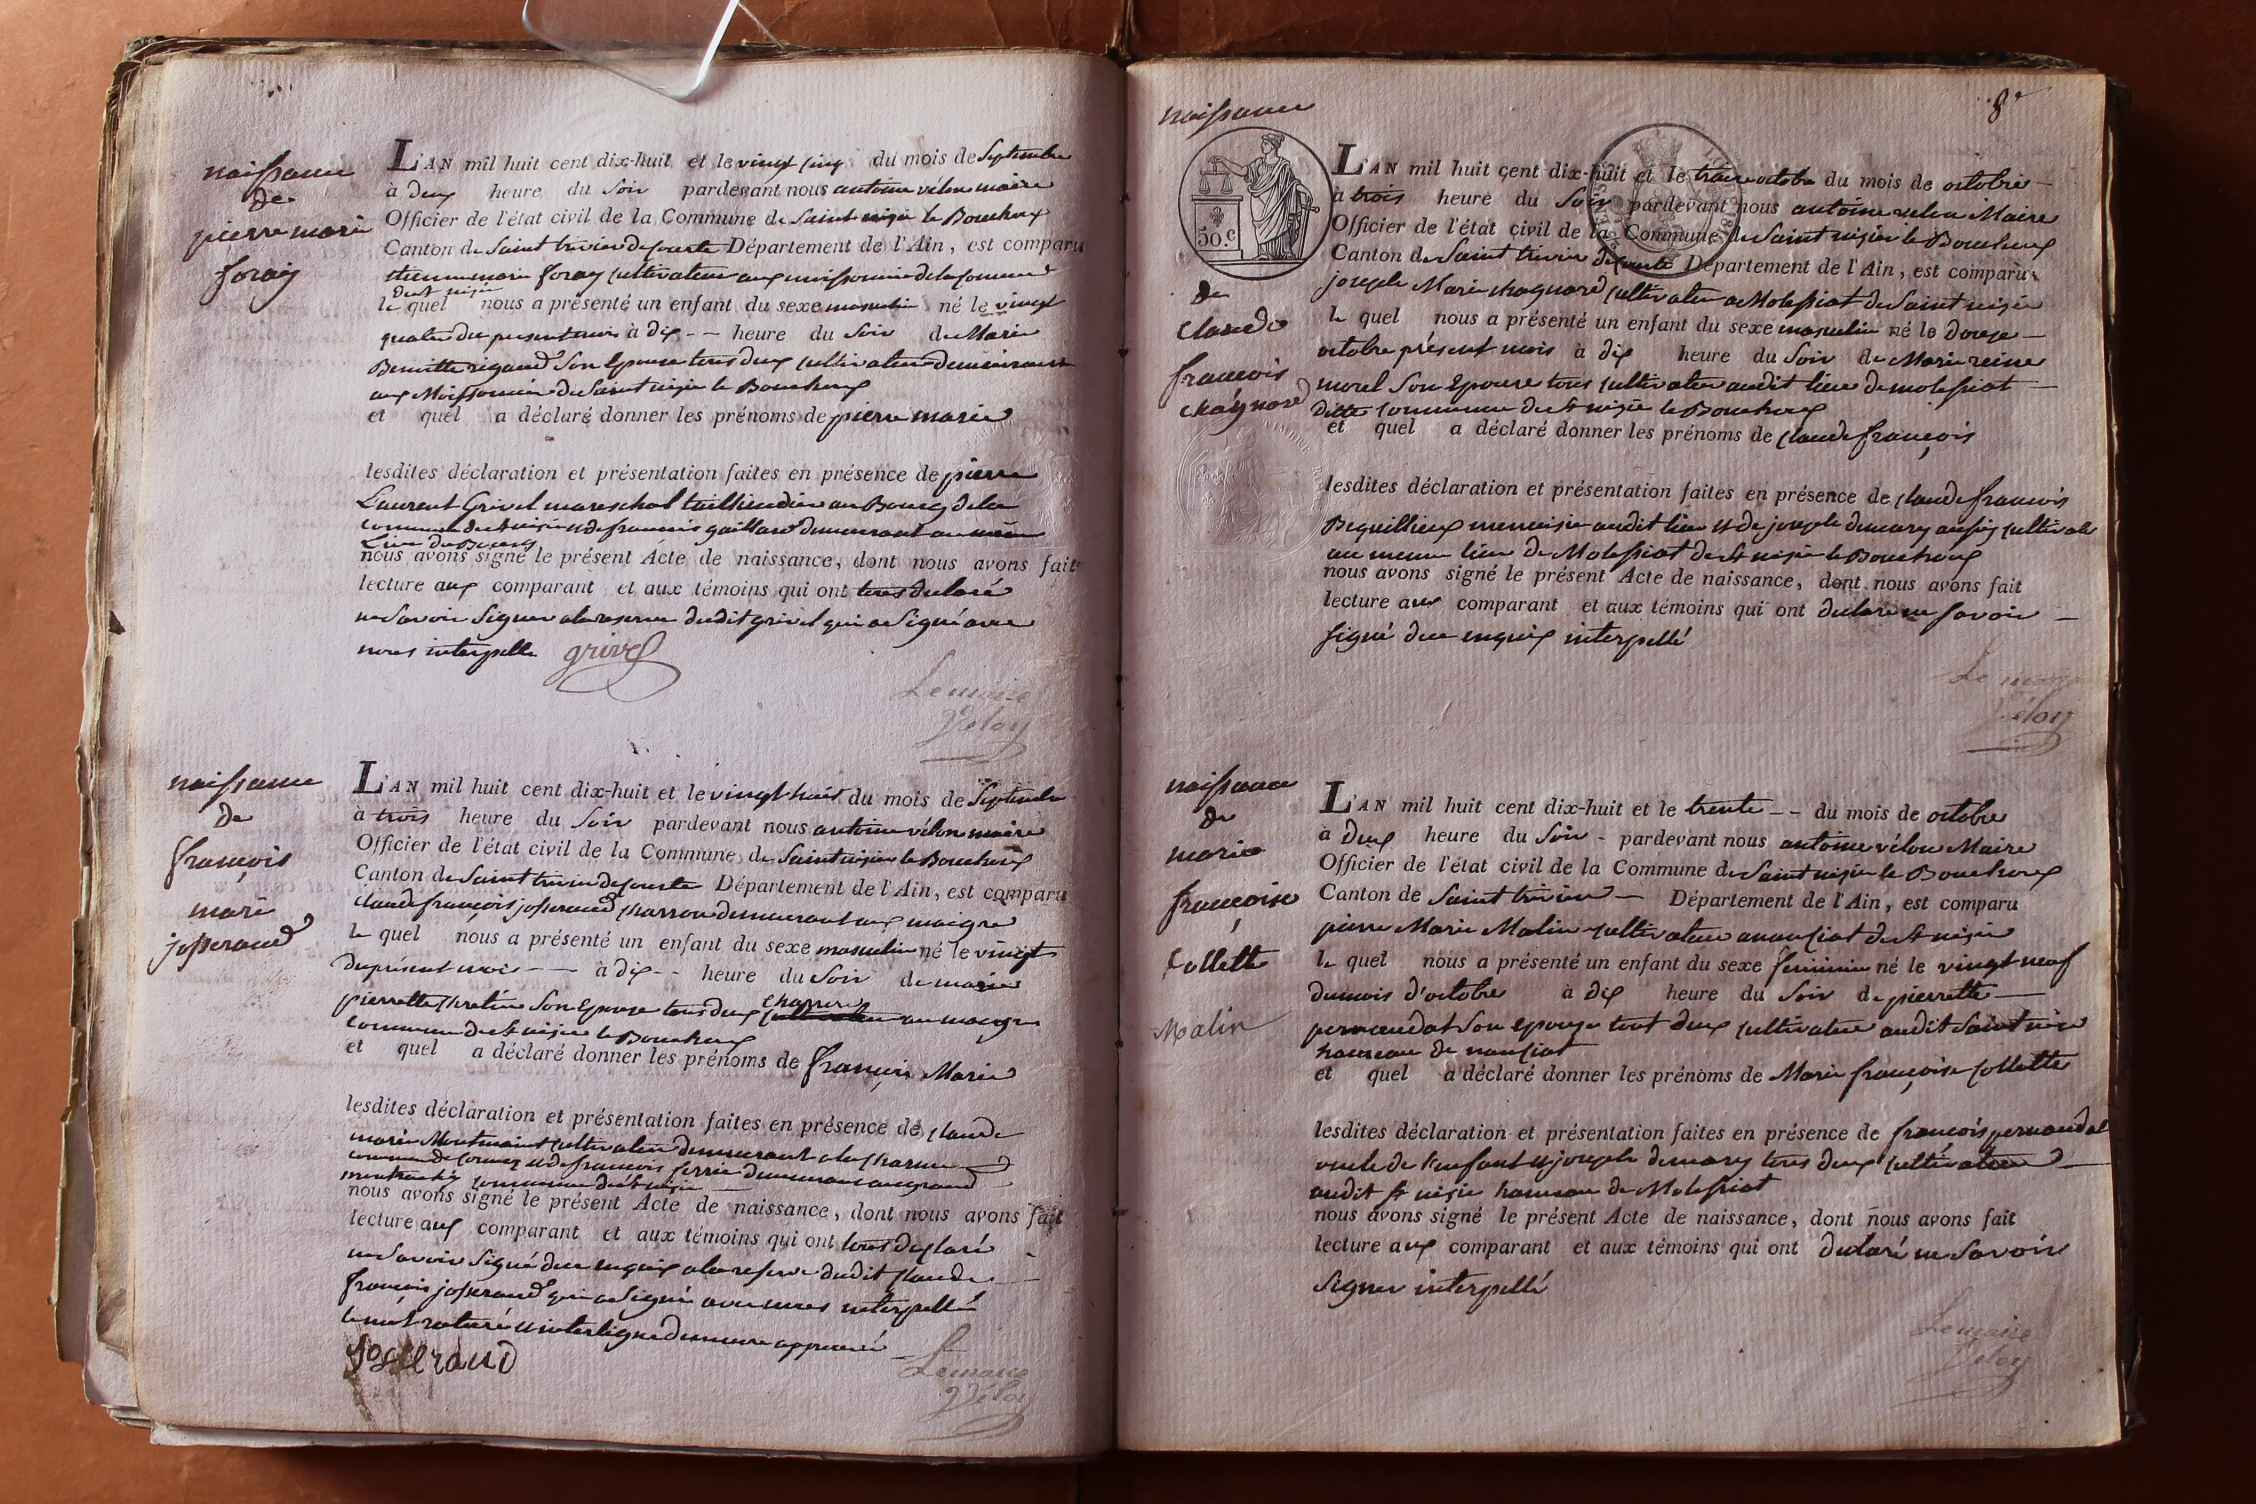 naissance
de
pierre marie
foray
L'AN mil huit cent dix-huit et le vingt cinq du mois de Septembre
à deux heure du Soir pardevant nous antoine vélon maire
Officier de l'état civil de la Commune de Saint nizier le Bouchoux
Canton de Saint trivier de courtes Département de l'Ain, est comparu
marie foray cultivateur aux moissonnier de la commune
de St nizier
le quel nous a présenté un enfant du sexe masculin né le vingt
quatre du present mois à dix -- heure du Soir de Marie
Benoitte rigaud Son Epouse tous deux cultivateur demeurant
aux Moissonnier de Saint nizier le Bouchoux
et quel a déclaré donner les prénoms de pierre marie
lesdites déclaration et présentation faites en présence de pierre
Laurent Grivel mareschal taillandier au Bourg de la
commune de St nizier et de françois gaillard demeurant au même
Lieu du Bourg
nous avons signé le présent Acte de naissance, dont nous avons fait
lecture aux comparant et aux témoins qui ont tous déclaré
ne Savoir Signer a la reserve dudit grivel qui a Signé avec
nous interpelle grivel
Lemaire
Vélon
naissance
de
françois
marie
josserand
L'AN mil huit cent dix-huit et le vingt huit du mois de Septembre
à trois heure du Soir pardevant nous antoine vélon maire
Officier de l'état civil de la Commune de Saint nizier le Bouchoux
Canton de Saint trivier de courtes Département de l'Ain, est comparu
claude françois josserand charron demeurant aux maigre
le quel nous a présenté un enfant du sexe masculin né le vingt
du présent mois -- à dix -- heure du Soir de marie
pierrette Son Epouse tous deux charron cultivateur au maigre
commune de St nizier le Bouchoux
et quel a déclaré donner les prénoms de françois Marie
lesdites déclaration et présentation faites en présence de claude
marie Montmain cultivateur demeurant a la charme
commune de et de françois ferrie demeurant au grand
commune de St nizier
nous avons signé le présent Acte de naissance, dont nous avons fait
lecture aux comparant et aux témoins qui ont tous déclaré
ne Savoir Signé de ce enquis a la reserve dudit claude
françois josserand qui a Signé avec nous interpellé
le mot raturé et interligne demeure approuvé
Josserand
Lemaire
Vélon
8e
naissance
50.c
de
claude
françois
chagnard
L'AN mil huit cent dix-huit et le treize octobre du mois de octobre
à trois heure du Soir pardevant nous antoine velon Maire
Officier de l'état civil de la Commune de Saint nizier le Bouchoux
Canton de Saint trivier de courtes Département de l'Ain, est comparu
joseph Marie chagnard cultivateur a Molossiat de Saint nizier
le quel nous a présenté un enfant du sexe masculin né le douze
octobre présent mois à dix heure du Soir de Marie reine
morel Son Epouse tous cultivateur audit lieu de molossiat
ditte commune de St nizier le Bouchoux
et quel a déclaré donner les prénoms de claude françois
lesdites déclaration et présentation faites en présence de claude françois
Bequillieux menuisier audit lieu et de joseph demary aussy cultivateur
au meme lieu de Molossiat de St nizier le Bouchoux
nous avons signé le présent Acte de naissance, dont nous avons fait
lecture aux comparant et aux témoins qui ont déclaré ne Savoir
signé de ce enquis interpellé
Le maire
Vélon
naissance
de
marie
françoise
Collette
Malin
L'AN mil huit cent dix-huit et le trente -- du mois de octobre
à deux heure du Soir - pardevant nous antoine vélon Maire
Officier de l'état civil de la Commune de Saint nizier le Bouchoux
Canton de Saint trivier Département de l'Ain, est comparu
pierre Marie Malin cultivateur a nanciat de St nizier
le quel nous a présenté un enfant du sexe feminin né le vingt neuf
du mois d'octobre à dix heure du Soir de pierrette
pernaudat Son epouse tout deux cultivateur audit Saint nizier
hameau de nanciat
et quel a déclaré donner les prénoms de Marie françoise Collette
lesdites déclaration et présentation faites en présence de françois pernaudat
oncle de l'enfant et joseph demary tous deux cultivateur
audit St nizie hameau de Molossiat
nous avons signé le présent Acte de naissance, dont nous avons fait
lecture aux comparant et aux témoins qui ont déclaré ne Savoir
Signer interpellé
Lemaire
Vélon